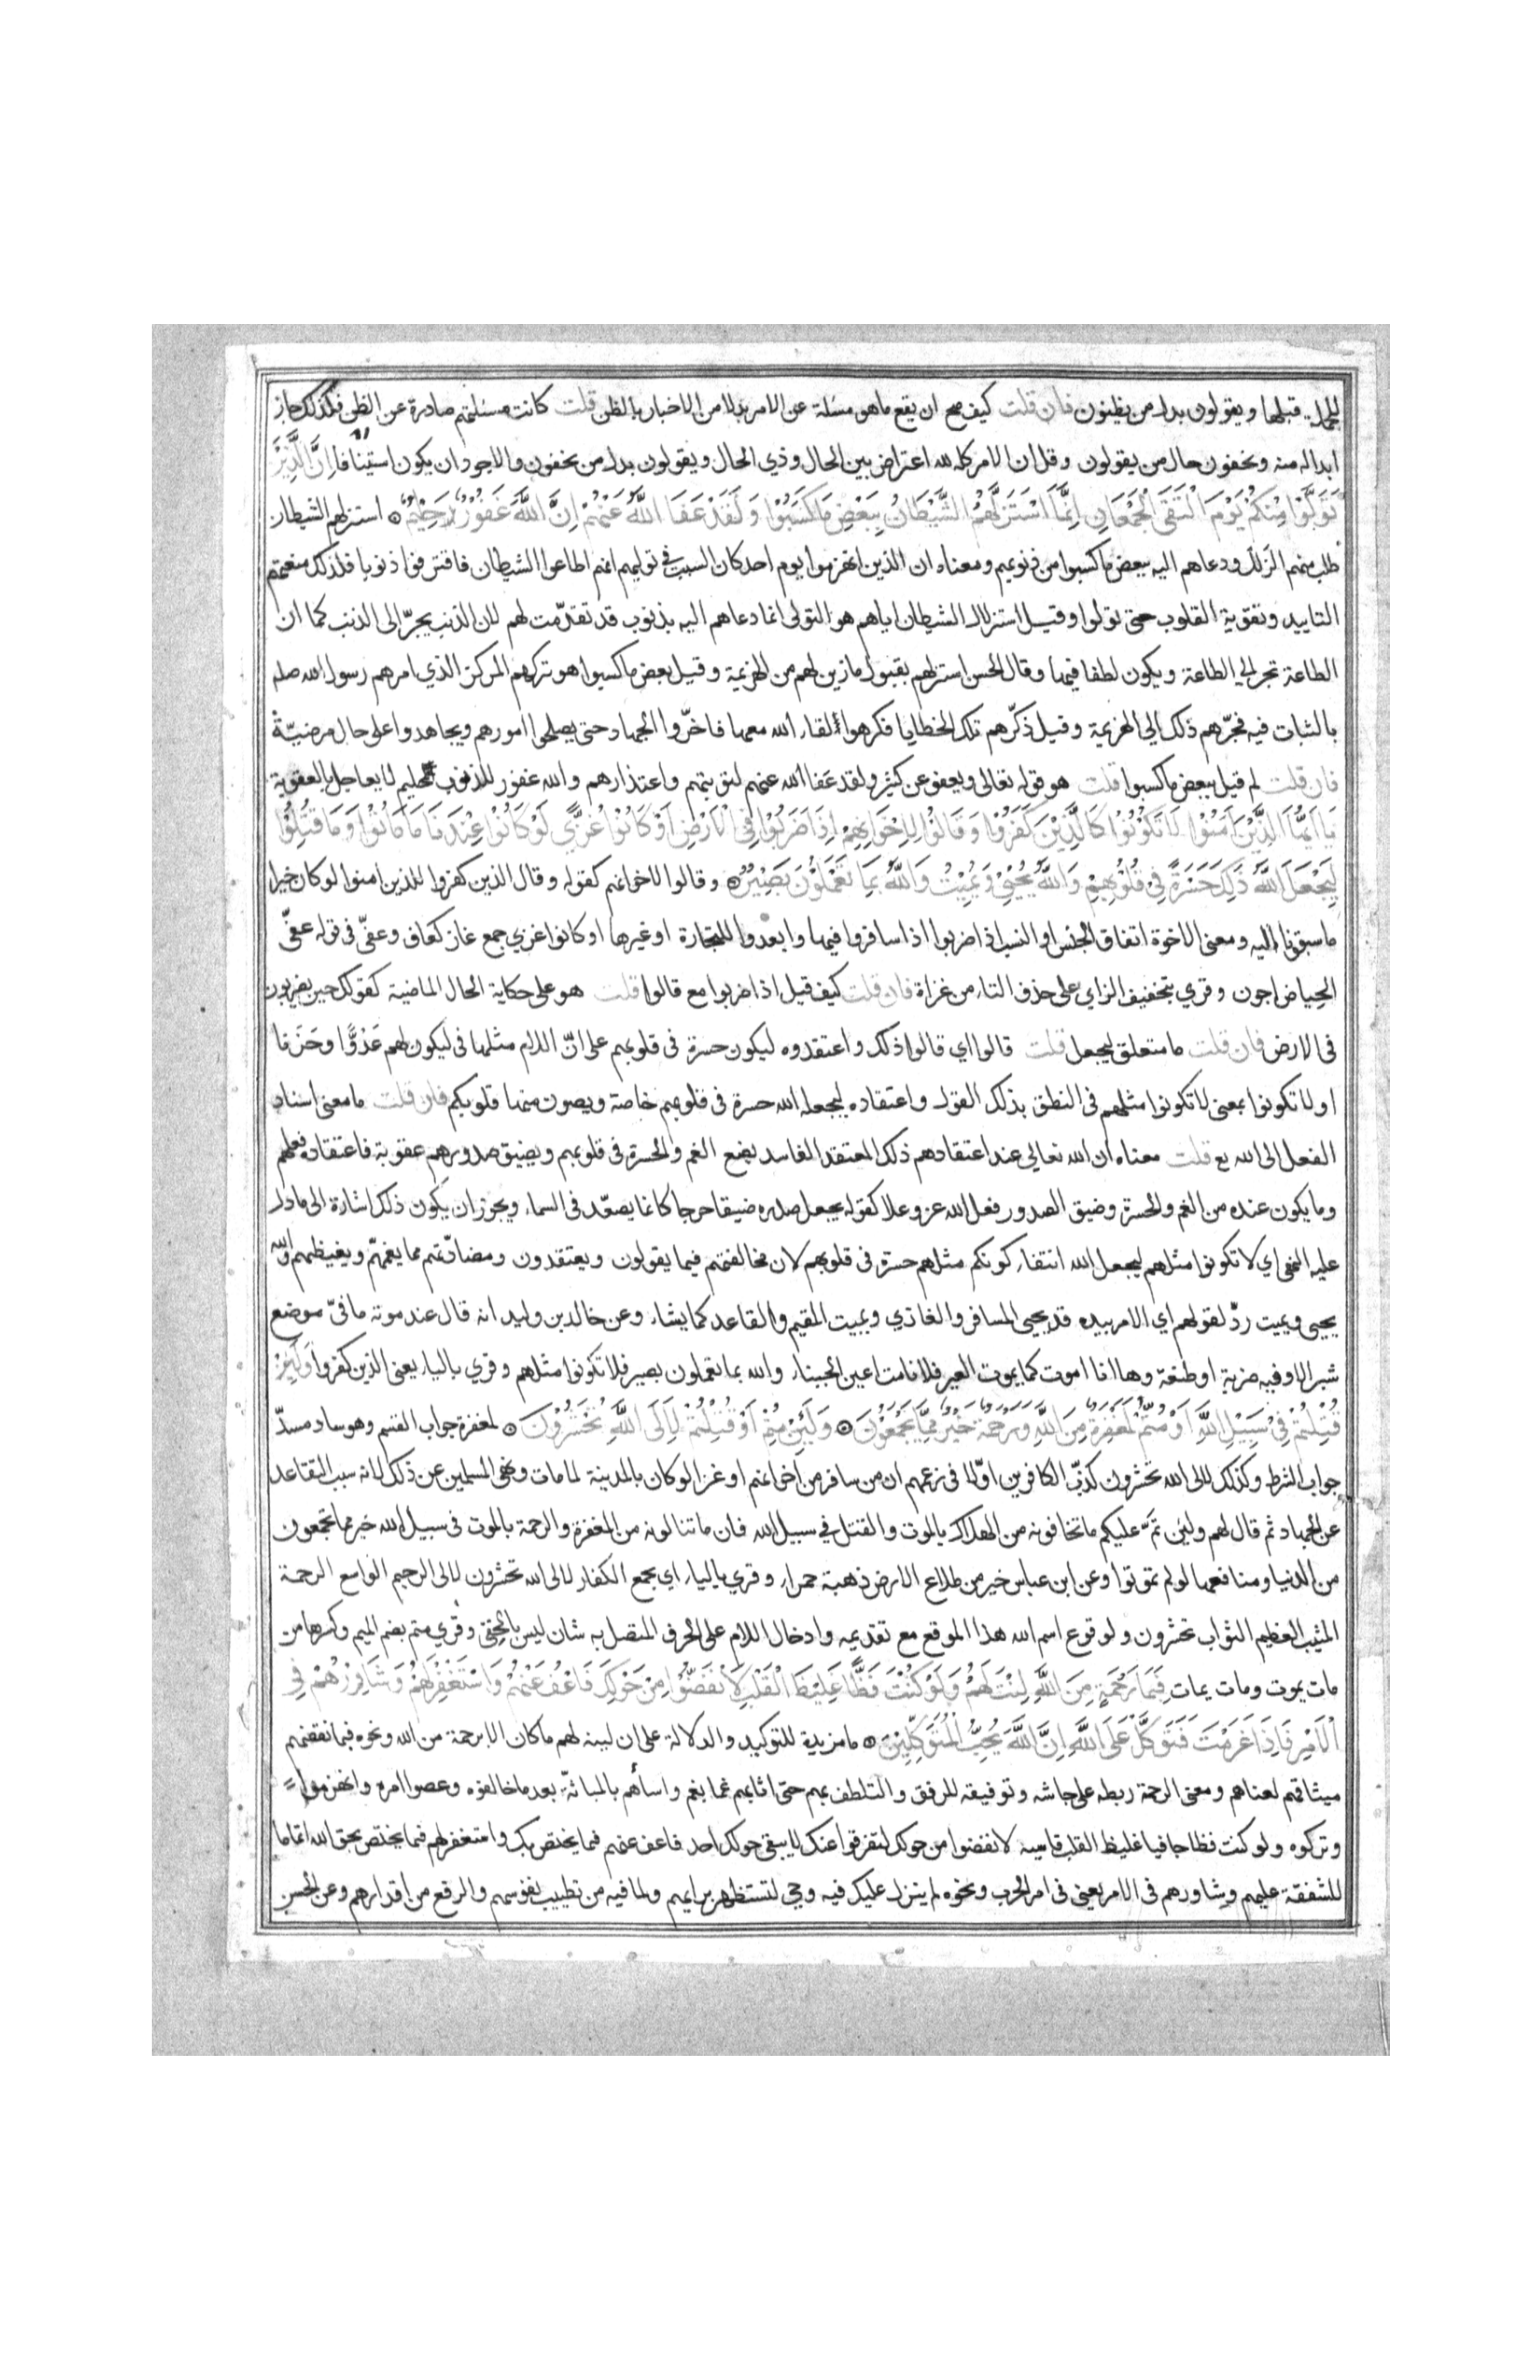 للجملة قبلها ويقولون بدل من يظنون فان قلت كيف صح ان يقع ما هو مسئلة عن الامر بدلا من الاخبار بالظن قلت كانت مسئلتهم صادرة عن الظن فلذلك جاز
ابداله منه ويخفون حال من يقولون وقل ان الامر كله لله اعتراض بين الحال وذي الحال ويقولون بدل من يخفون والاجود ان يكون استينافا اِنَّ الَّذِيْنَ
تَوَلَّوْا مِنْكُمْ يَوْمَ الْتَقَى الْجَمْعَانِ اِنَّمَا اسْتَزَلَّهُمُ الشَّيْطَانُ بِبَعْضِ مَا كَسَبُوْا وَلَقَدْ عَفَا اللّٰهُ عَنْهُمْ اِنَّ اللّٰهَ غَفُوْرٌ حَلِيْمٌ استزلهم الشيطان
طلب منهم الزلل ودعاهم اليه ببعض ما كسبوا من ذنوبهم ومعناه ان الذين انهزموا يوم احد كان السبب في توليهم انهم اطاعوا الشيطان فاقترفوا ذنوبا فلذلك منعتهم
التاييد وتقوية القلوب حتى تولوا وقيل استزلال الشيطان اياهم هو التولى انما دعاهم اليه بذنوب قد تقدّمت لهم لان الذنب يجرّ الى الذنب كما ان
الطاعة تجر الي الطاعة ويكون لطفا فيها وقال الحسن استزلهم بقبول ما زين لهم من الهزيمة وقيل بعض ما كسبوا هو تركهم المركز الذي امرهم رسول الله صلم
بالثبات فيه فجرّهم ذلك الي الهزيمة وقيل ذكّرهم تلك الخطايا فكرهوا لقاء الله معها فاخّروا الجهاد حتى يصلحوا امورهم ويجاهدوا على حال مرضيّة
فان قلت لم قيل ببعض ما كسبوا قلت هو قوله تعالى ويعفو عن كثير ولقد عفا الله عنهم لتوبتهم واعتذارهم والله غفور للذنوب حليم لا يعاجل بالعقوبة
يَا اَيُّهَا الَّذِيْنَ اٰمَنُوْا لَا تَكُوْنُوْا كَالَّذِيْنَ كَفَرُوْا وَقَالُوْا لِاِخْوَانِهِمْ اِذَا ضَرَبُوْا فِي الْاَرْضِ اَوْ كَانُوْا غُزًّى لَوْ كَانُوْا عِنْدَنَا مَا مَاتُوْا وَمَا قُتِلُوْا
لِيَجْعَلَ اللّٰهُ ذٰلِكَ حَسْرَةً فِي قُلُوْبِهِمْ وَاللّٰهُ يُحْيِيْ وَيُمِيْتُ وَاللّٰهُ بِمَا تَعْمَلُوْنَ بَصِيْرٌ وقالوا لاخوانهم كقوله وقال الذين كفروا للذين امنوا لو كان خيرا
ما سبقونا اليه ومعنى الاخوة اتفاق الجنس او النسب اذا ضربوا اذا سافروا فيها وابعدوا للتجارة او غيرها او كانوا غزي جمع غاز كعاف وعفّى في قوله عفّى
الحياض اجون وقري بتخفيف الزاي على حذف التاء من غزاة فان قلت كيف قيل اذا ضربوا مع قالوا قلت هو على حكاية الحال الماضية كقولك حين يضربون
فى الارض فان قلت ما متعلق ليجعل قلت قالوا اي قالوا ذلك واعتقدوه ليكون حسرة في قلوبهم على انّ اللام مثلها في ليكون لهم عَدُوًّا وحَزَنا
او لا تكونوا بمعنى لا تكونوا مثلهم في النطق بذلك القول واعتقاده ليجعله الله حسرة في قلوبهم خاصة ويصون منها قلوبكم فان قلت ما معنى اسناد
الفعل الى الله تع قلت معناه ان الله تعالى عند اعتقادهم ذلك المعتقد الفاسد يضع الغم والحسرة في قلوبهم ويضيق صدورهم عقوبة فاعتقاده فعلهم
وما يكون عنده من الغم والحسرة وضيق الصدور فعل الله عز وعلا كقوله يجعل صدره ضيقا حرجا كانما يصعّد في السماء ويجوز ان يكون ذلك اشارة الى ما دل
عليه النهي اي لا تكونوا مثلهم ليجعل الله انتفاء كونكم مثلهم حسرة في قلوبهم لان مخالفتهم فيما يقولون ويعتقدون ومضادّتهم مما يغمهمّ ويغيظهم والله
يحيى ويميت ردّ لقولهم اي الامر بيده قد يحيى المسافر والغازي ويميت المقيم والقاعد كما يشاء وعن خالد بن وليد انه قال عند موته ما فيّ موضع
شبر الا وفيه ضربة او طعنة وها انا اموت كما يموت العير فلا نامت اعين الجبناء والله بما تعملون بصير فلا تكونوا مثلهم وقري بالياء يعني الذين كفروا وَلَئِنْ
قُتِلْتُمْ فِيْ سَبِيْلِ اللّٰهِ اَوْ مُتُّمْ لَمَغْفِرَةٌ مِنَ اللّٰهِ وَرَحْمَةٌ خَيْرٌ مِمَّا يَجْمَعُوْنَ وَلَئِنْ مُتُّمْ اَوْ قُتِلْتُمْ لَاِلَى اللّٰهِ تُحْشَرُوْنَ لمغفرة جواب القسم وهو ساد مسدّ
جواب الشرط وكذلك لالى الله تحشرون كذّب الكافرين اوّلا في زعمهم ان من سافر من اخوانهم او غزا لو كان بالمدينة لما مات ونهى المسلمين عن ذلك لانه سبب التقاعد
عن الجهاد ثم قال لهم ولئن تمّ عليكم ما تخافونه من الهلاك بالموت والقتل في سبيل الله فان ما تنالونه من المغفرة والرحمة بالموت في سبيل الله خير مما تجمعون
من الدنيا ومنافعها لو لم تموتوا وعن ابن عباس خير من طلاع الارض ذهبة حمراء وقري بالياء اي يجمع الكفار لالى الله تحشرون لالى الرحيم الواسع الرحمة
المثيب العظيم الثواب تحشرون ولوقوع اسم الله هذا الموقع مع تقديمه وادخال اللام على الحرف المتصل به شان ليس بالخفي وقري متم بضم الميم وكسرها من
مات يموت ومات يمات فَبِمَا رَحْمَةٍ مِنَ اللّٰهِ لِنْتَ لَهُمْ وَلَوْ كُنْتَ فَظًّا غَلِيْظَ الْقَلْبِ لَانْفَضُّوْا مِنْ حَوْلِكَ فَاعْفُ عَنْهُمْ وَاسْتَغْفِرْ لَهُمْ وَشَاوِرْهُمْ فِي
الْاَمْرِ فَاِذَا عَزَمْتَ فَتَوَكَّلْ عَلَى اللّٰهِ اِنَّ اللّٰهَ يُحِبُّ الْمُتَوَكِّلِيْنَ ما مزيدة للتوكيد والدلالة على ان لينه لهم ما كان الا برحمة من الله ونحوه فبما نقضهم
ميثاقهم لعناهم ومعنى الرحمة ربطه على جاشه وتوفيقه للرفق والتلطف بهم حتى اثابهم غما بغم واسأهم بالمباثّة بعد ما خالفوه وعصوا امره وانهزموا
وتركوه ولو كنت فظا جافيا غليظ القلب قاسيه لانفضوا من حولك لتفرقوا عنك لا يبقى حولك احد فاعف عنهم فيما يختص بك واستغفر لهم فيما يختص بحق الله اتماما
للشفقة عليهم وشاورهم في الامر يعني في امر الحرب ونحوه لم ينزل عليك فيه وحي لتستظهر برايهم ولما فيه من تطييب نفوسهم والرفع من اقدارهم وعن الحسن